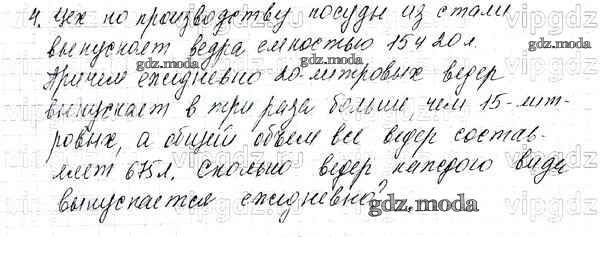 4. Цех по производству посуды из стали
выпускает ведра емкостью 15 и 20 л.
Причем ежедневно 20-литровых ведер
выпускает в три раза больше, чем 15-лит-
ровых, а общий объем все ведер состав-
ляет 675 л. Сколько ведер каждого вида
выпускается ежедневно?
gdz.moda
gdz.moda
gdz.moda
gdz.moda
gdz.moda